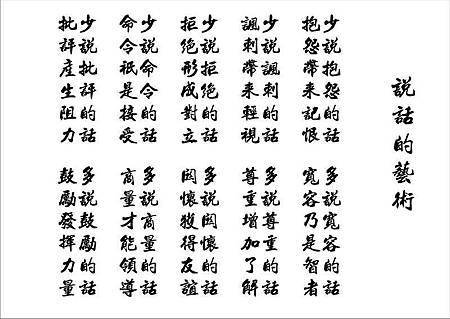 說話的藝術
少說抱怨的話
抱怨帶來記恨
多說寬容的話
寬容乃是智者
少說諷刺的話
諷刺帶來輕視
多說尊重的話
尊重增加了解
少說拒絕的話
拒絕形成對立
多說關懷的話
關懷獲得友誼
少說命令的話
命令祇是接受
多說商量的話
商量才能領導
少說批評的話
批評產生阻力
多說鼓勵的話
鼓勵發揮力量